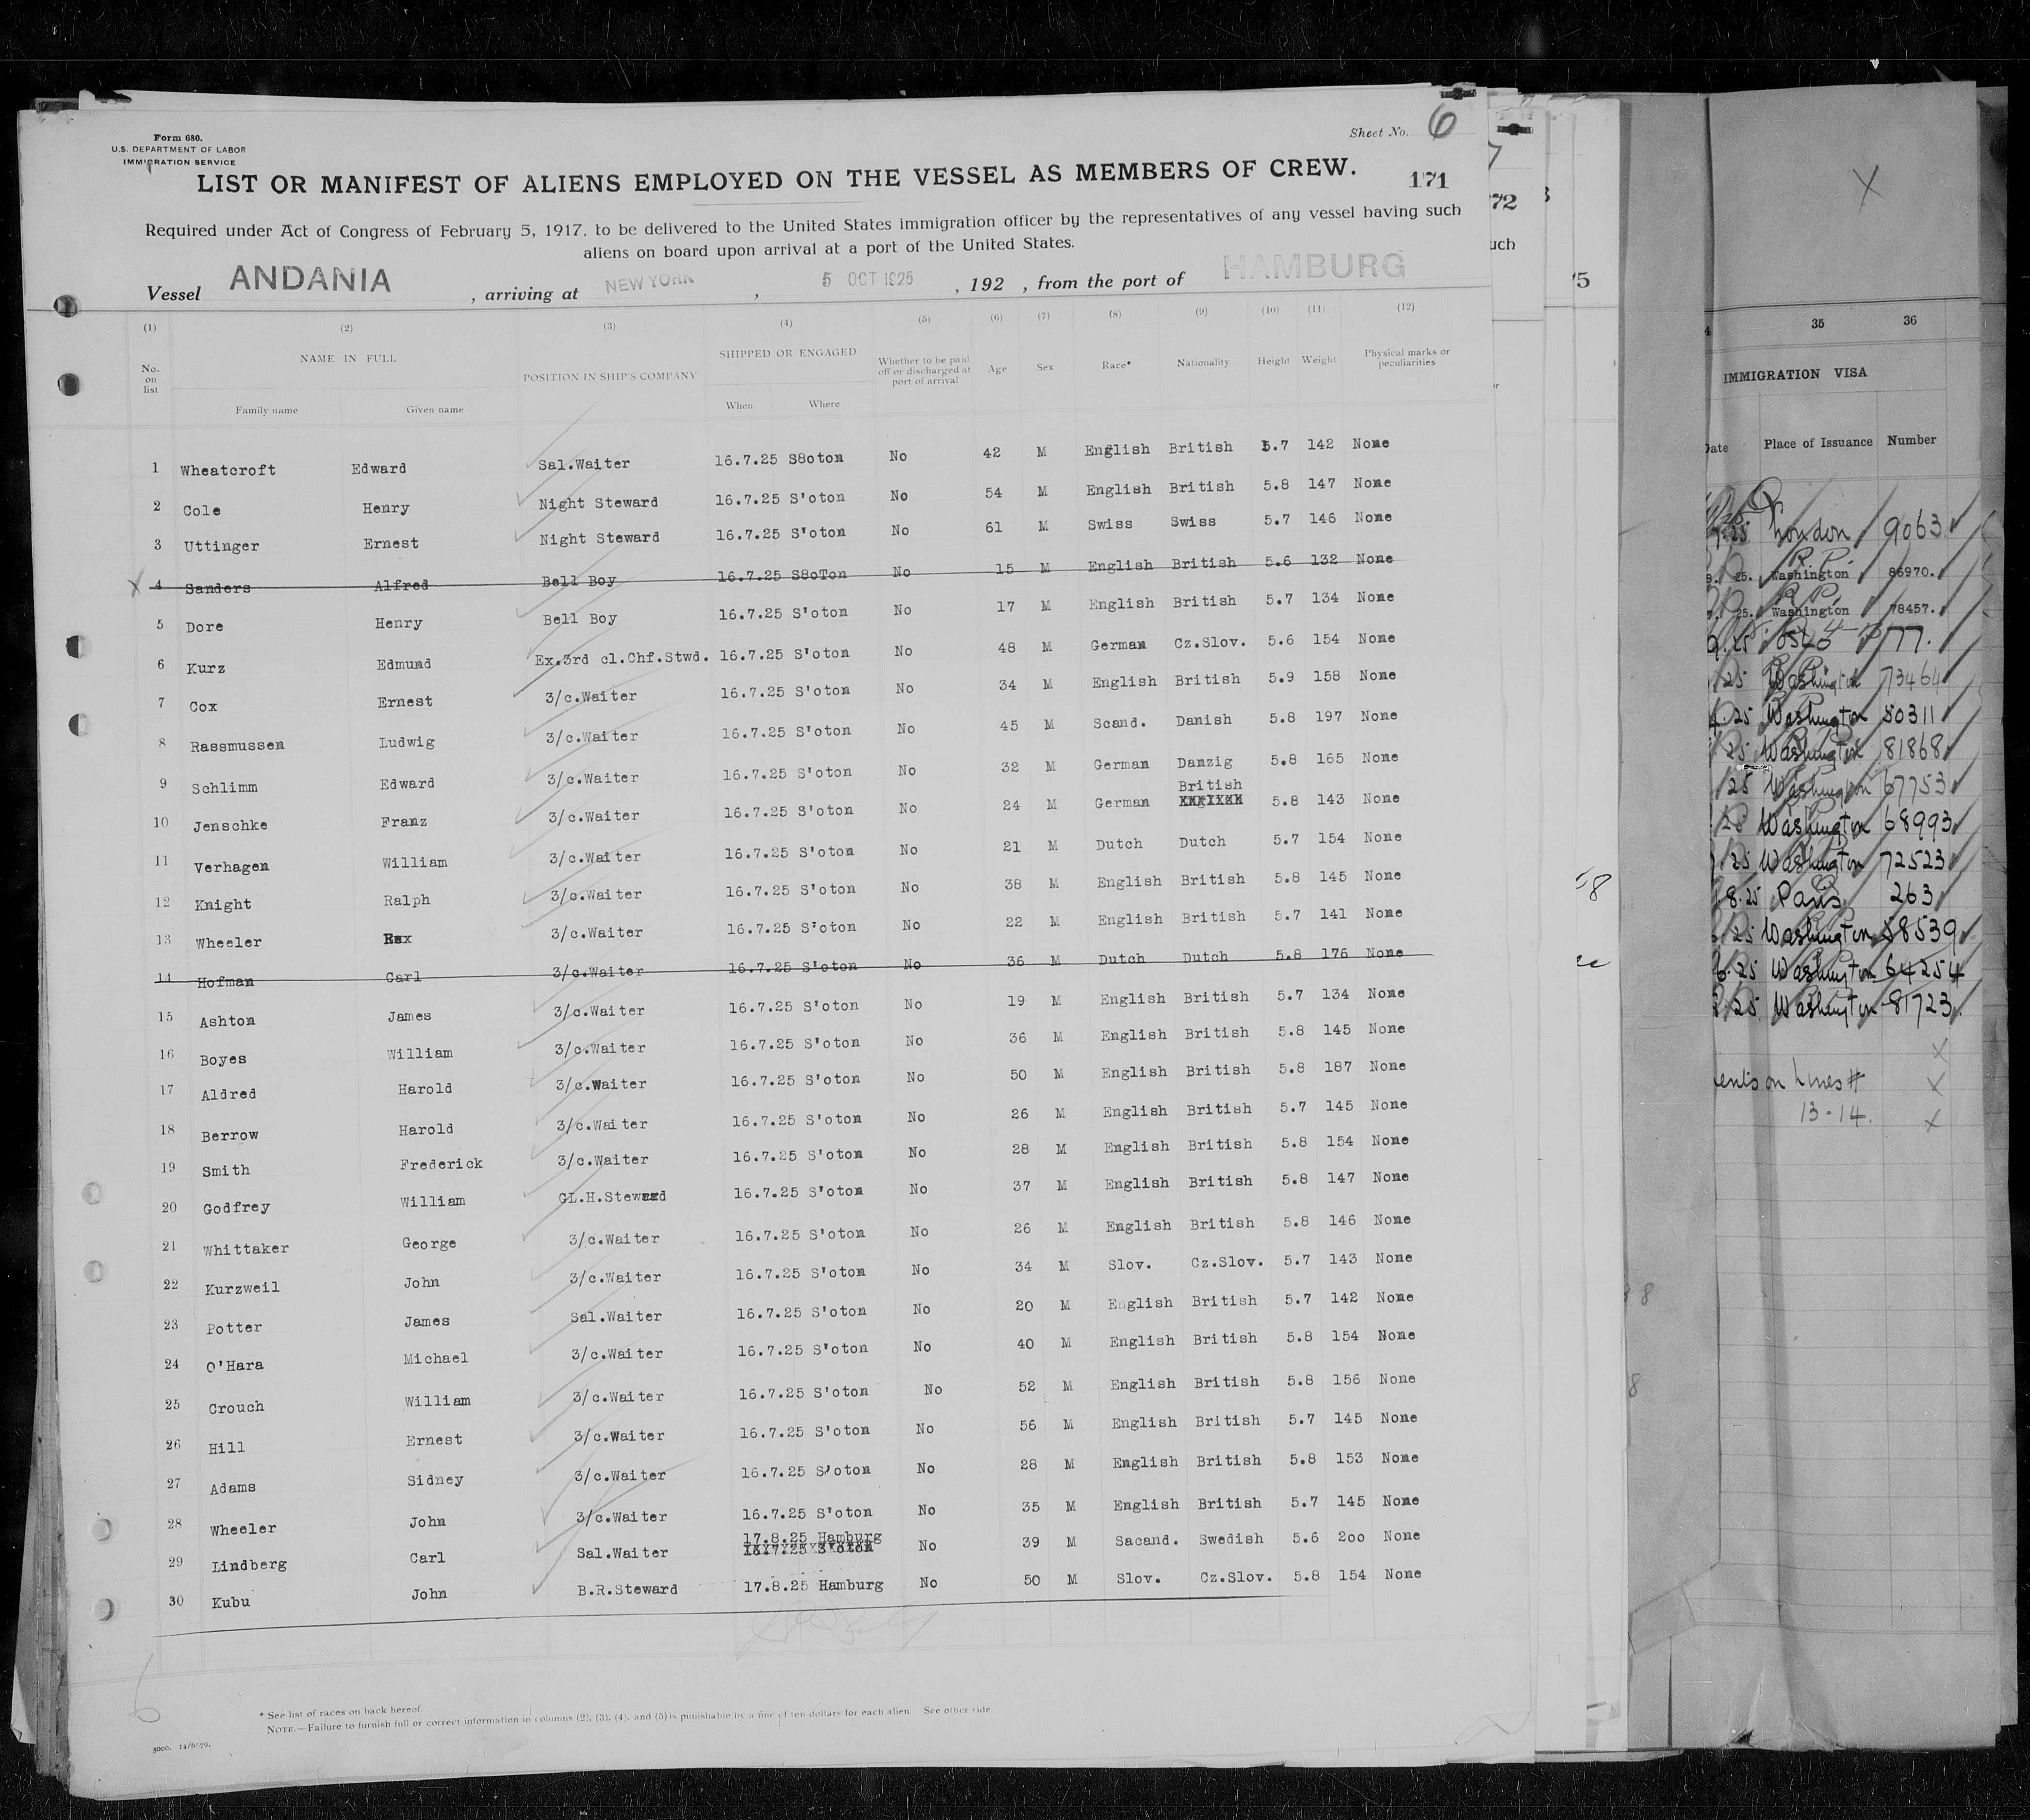 Form 680.
U.S. DEPARTMENT OF LABOR
IMMIGRATION SERVICE
Sheet No. 6
LIST OR MANIFEST OF ALIENS EMPLOYED ON THE VESSEL AS MEMBERS OF CREW. 171
Required under Act of Congress of February 5, 1917, to be delivered to the United States immigration officer by the representatives of any vessel having such
aliens on board upon arrival at a port of the United States.
Vessel ANDANIA , arriving at NEW YORK , 5 OCT 1925 , 192 , from the port of HAMBURG
(1) (2) (3) (4) (5) (6) (7) (8) (9) (10) (11) (12)
No. on list NAME IN FULL POSITION IN SHIP'S COMPANY SHIPPED OR ENGAGED Whether to be paid off or discharged at port of arrival Age Sex Race* Nationality Height Weight Physical marks or peculiarities
Family name Given name When Where
1 Wheatcroft Edward Sal.Waiter 16.7.25 S8oton No 42 M English British 5.7 142 None
2 Cole Henry Night Steward 16.7.25 S'oton No 54 M English British 5.8 147 None
3 Uttinger Ernest Night Steward 16.7.25 S'oton No 61 M Swiss Swiss 5.7 146 None
X 4 Sanders Alfred Bell Boy 16.7.25 S8oTon No 15 M English British 5.6 132 None
5 Dore Henry Bell Boy 16.7.25 S'oton No 17 M English British 5.7 134 None
6 Kurz Edmund Ex.3rd cl.Chf.Stwd. 16.7.25 S'oton No 48 M German Cz.Slov. 5.6 154 None
7 Cox Ernest 3/c.Waiter 16.7.25 S'oton No 34 M English British 5.9 158 None
8 Rassmussen Ludwig 3/c.Waiter 16.7.25 S'oton No 45 M Scand. Danish 5.8 197 None
9 Schlimm Edward 3/c.Waiter 16.7.25 S'oton No 32 M German Danzig 5.8 165 None
British
10 Jenschke Franz 3/c.Waiter 16.7.25 S'oton No 24 M German 5.8 143 None
11 Verhagen William 3/c.Waiter 16.7.25 S'oton No 21 M Dutch Dutch 5.7 154 None
12 Knight Ralph 3/c.Waiter 16.7.25 S'oton No 38 M English British 5.8 145 None
13 Wheeler Rex 3/c.Waiter 16.7.25 S'oton No 22 M English British 5.7 141 None
14 Hofman Carl 3/c.Waiter 16.7.25 S'oton No 36 M Dutch Dutch 5.8 176 None
15 Ashton James 3/c.Waiter 16.7.25 S'oton No 19 M English British 5.7 134 None
16 Boyes William 3/c.Waiter 16.7.25 S'oton No 36 M English British 5.8 145 None
17 Aldred Harold 3/c.Waiter 16.7.25 S'oton No 50 M English British 5.8 187 None
18 Berrow Harold 3/c.Waiter 16.7.25 S'oton No 26 M English British 5.7 145 None
19 Smith Frederick 3/c.Waiter 16.7.25 S'oton No 28 M English British 5.8 154 None
20 Godfrey William GL.H.Steward 16.7.25 S'oton No 37 M English British 5.8 147 None
21 Whittaker George 3/c.Waiter 16.7.25 S'oton No 26 M English British 5.8 146 None
22 Kurzweil John 3/c.Waiter 16.7.25 S'oton No 34 M Slov. Cz.Slov. 5.7 143 None
23 Potter James Sal.Waiter 16.7.25 S'oton No 20 M English British 5.7 142 None
24 O'Hara Michael 3/c.Waiter 16.7.25 S'oton No 40 M English British 5.8 154 None
25 Crouch William 3/c.Waiter 16.7.25 S'oton No 52 M English British 5.8 156 None
26 Hill Ernest 3/c.Waiter 16.7.25 S'oton No 56 M English British 5.7 145 None
27 Adams Sidney 3/c.Waiter 16.7.25 S'oton No 28 M English British 5.8 153 None
28 Wheeler John 3/c.Waiter 16.7.25 S'oton No 35 M English British 5.7 145 None
17.8.25 Hamburg
29 Lindberg Carl Sal.Waiter 16.7.25 S'oton No 39 M Sacand. Swedish 5.6 2oo None
30 Kubu John B.R.Steward 17.8.25 Hamburg No 50 M Slov. Cz.Slov. 5.8 154 None
6
* See list of races on back hereof.
NOTE.—Failure to furnish full or correct information in columns (2), (3), (4), and (5) is punishable by a fine of ten dollars for each alien. See other side.
72
uch
75
X
35 36
IMMIGRATION VISA
Date Place of Issuance Number
7.25 London 9063
25. Washington 86970.
25. Washington 78457.
9.25 Oslo 77.
25 Washington 73464
4.25 Washington 50311
25 Washington 81868
25 Washington 67753
25 Washington 68993
25 Washington 72523
8.25 Paris 263
25 Washington 58539
6.25 Washington 64254
25 Washington 81723
on Lines #
13-14.